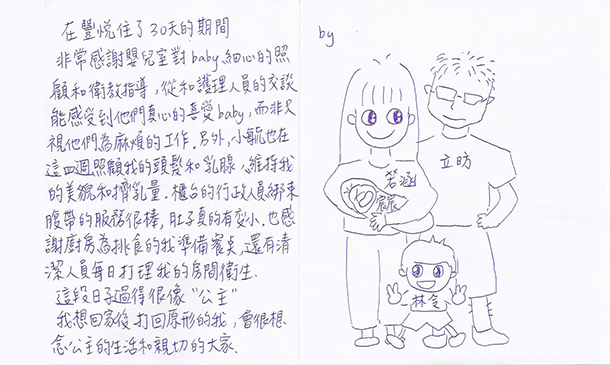 在豐悅住了30天的期間
非常感謝嬰兒室對baby細心的照
顧和衛教指導,從和護理人員的交談
能感受到他們真心的喜愛baby,而非只
視他們為麻煩的工作.另外,小毓也在
這四週照顧我的頭髮和乳腺,維持我
的美貌和擠乳量.櫃台的行政人員綁束
腹帶的服務很棒,肚子真的有變小.也感
謝廚房為挑食的我準備餐桌,還有清
潔人員每日打理我的房間衛生.
這段日子過得很像"公主"
我想回家後,打回原形的我,會很想
念公主的生活和親切的大家.
by
立昀
若涵
宸
林令